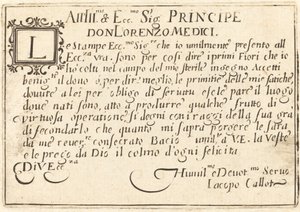 All Ill.mo & Ecc.mo Sig. PRINCIPE
DON LORENZO MEDICI.
Le stampe Ecc.mo Sig.re che io umilmente presento all
Ecc.za vra. sono per cosi dire i primi Fiori che io
ho colti nel campo del mio sterile ingegno Accetti
benigno il dono, o per dir meglio, le primitie delle mie fatiche,
dovute a lei per obligo di servitu, e se pare il luogo
doue nati sono, atto a produrre qualche frutto di
virtuosa operatione si degni con i raggi della sua gra
di fecondarlo che quanto mi sapra porgere le sara
da me reuer.te consecrato Bacio umil.te a V.E. la Veste
e le prego da Dio il colmo d'ogni felicita
Di V. Ecc.za
Humiliss.o e Deuot.mo Seruo
Iacopo Callot.